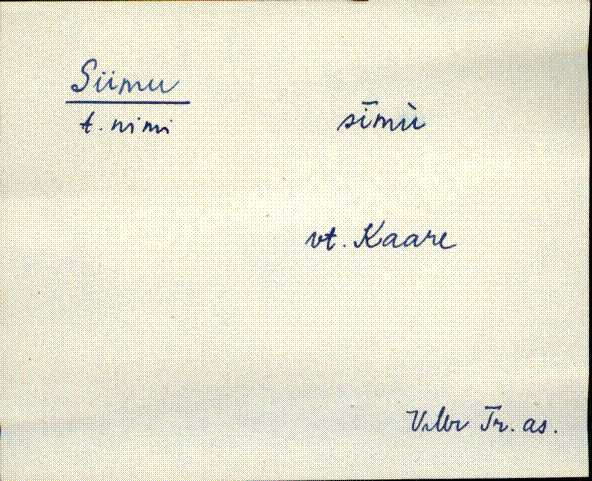 Siimu
t. nimi
sīmù
vt. Kaare
Tr. as.